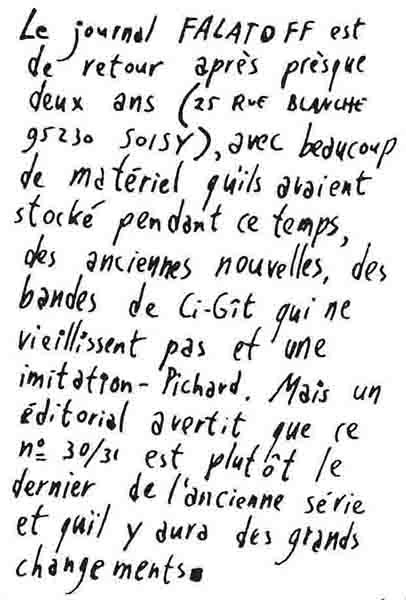 Le journal FALATOFF est
de retour après prèsque
deux ans (25 RUE BLANCHE
95230 SOISY), avec beaucoup
de matériel qu'ils avaient
stocké pendant ce temps,
des anciennes nouvelles, des
bandes de Ci-Gît qui ne
vieillissent pas et une
imitation-Pichard. Mais un
éditorial avertit que ce
nº 30/31 est plutôt le
dernier de l'ancienne série
et qu'il y aura des grands
changements.